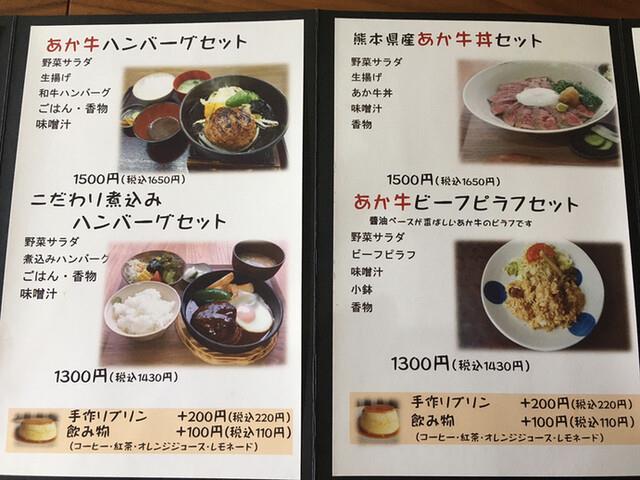 あか牛ハンバーグセット
野菜サラダ
生揚げ
和牛ハンバーグ
ごはん・香物
味噌汁
1500円(税込1650円)
こだわり煮込み
ハンバーグセット
野菜サラダ
煮込みハンバーグ
ごはん・香物
味噌汁
1300円(税込1430円)
手作りプリン +200円(税込220円)
飲み物 +100円(税込110円)
(コーヒー・紅茶・オレンジジュース・レモネード)
熊本県産あか牛丼セット
野菜サラダ
生揚げ
あか牛丼
味噌汁
香物
1500円(税込1650円)
あか牛ビーフピラフセット
醤油ベースが香ばしいあか牛のピラフです
野菜サラダ
ビーフピラフ
味噌汁
小鉢
香物
1300円(税込1430円)
手作りプリン +200円(税込220円)
飲み物 +100円(税込110円)
(コーヒー・紅茶・オレンジジュース・レモネード)